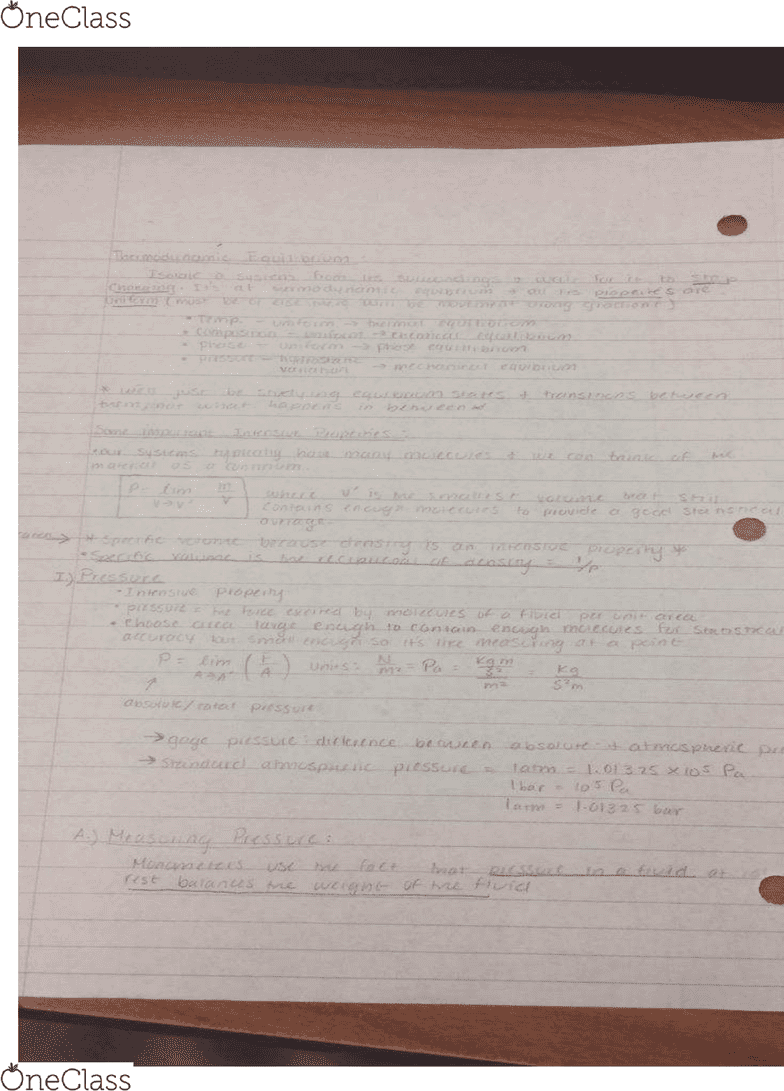 OneClass
Thermodynamic Equilibrium:
Isolate a system from its surroundings + wait for it to stop
changing. It's at thermodynamic equilibrium + all its properties are
uniform (must be or else there will be movement along gradient)
• Temp. - uniform → thermal equilibrium
• composition - uniform → chemical equilibrium
• phase - uniform → phase equilibrium
• pressure - hydrostatic variation → mechanical equilibrium
* we'll just be studying equilibrium states + transitions between
them, not what happens in between *
Some Important Intensive Properties:
• our systems typically have many molecules + we can think of the
material as a continuum.
ρ = lim V→V' m/V where V' is the smallest volume that still
contains enough molecules to provide a good statistical
average.
→ * specific volume because density is an intensive property *
• specific volume is the reciprocal of density = 1/ρ
I.) Pressure
• Intensive Property
• pressure = the force exerted by molecules of a fluid per unit area
• choose area large enough to contain enough molecules for statistical
accuracy but small enough so it's like measuring at a point
P = lim A→A' (F/A) units = N/m² = Pa = kg m/s² / m² = kg/s²m
↑
absolute/total pressure
→ gage pressure: difference between absolute + atmospheric
→ standard atmospheric pressure = 1 atm = 1.01325 x 10⁵ Pa
1 bar = 10⁵ Pa
1 atm = 1.01325 bar
A.) Measuring Pressure:
Manometers use the fact that pressure in a fluid at
rest balances the weight of the fluid
OneClass